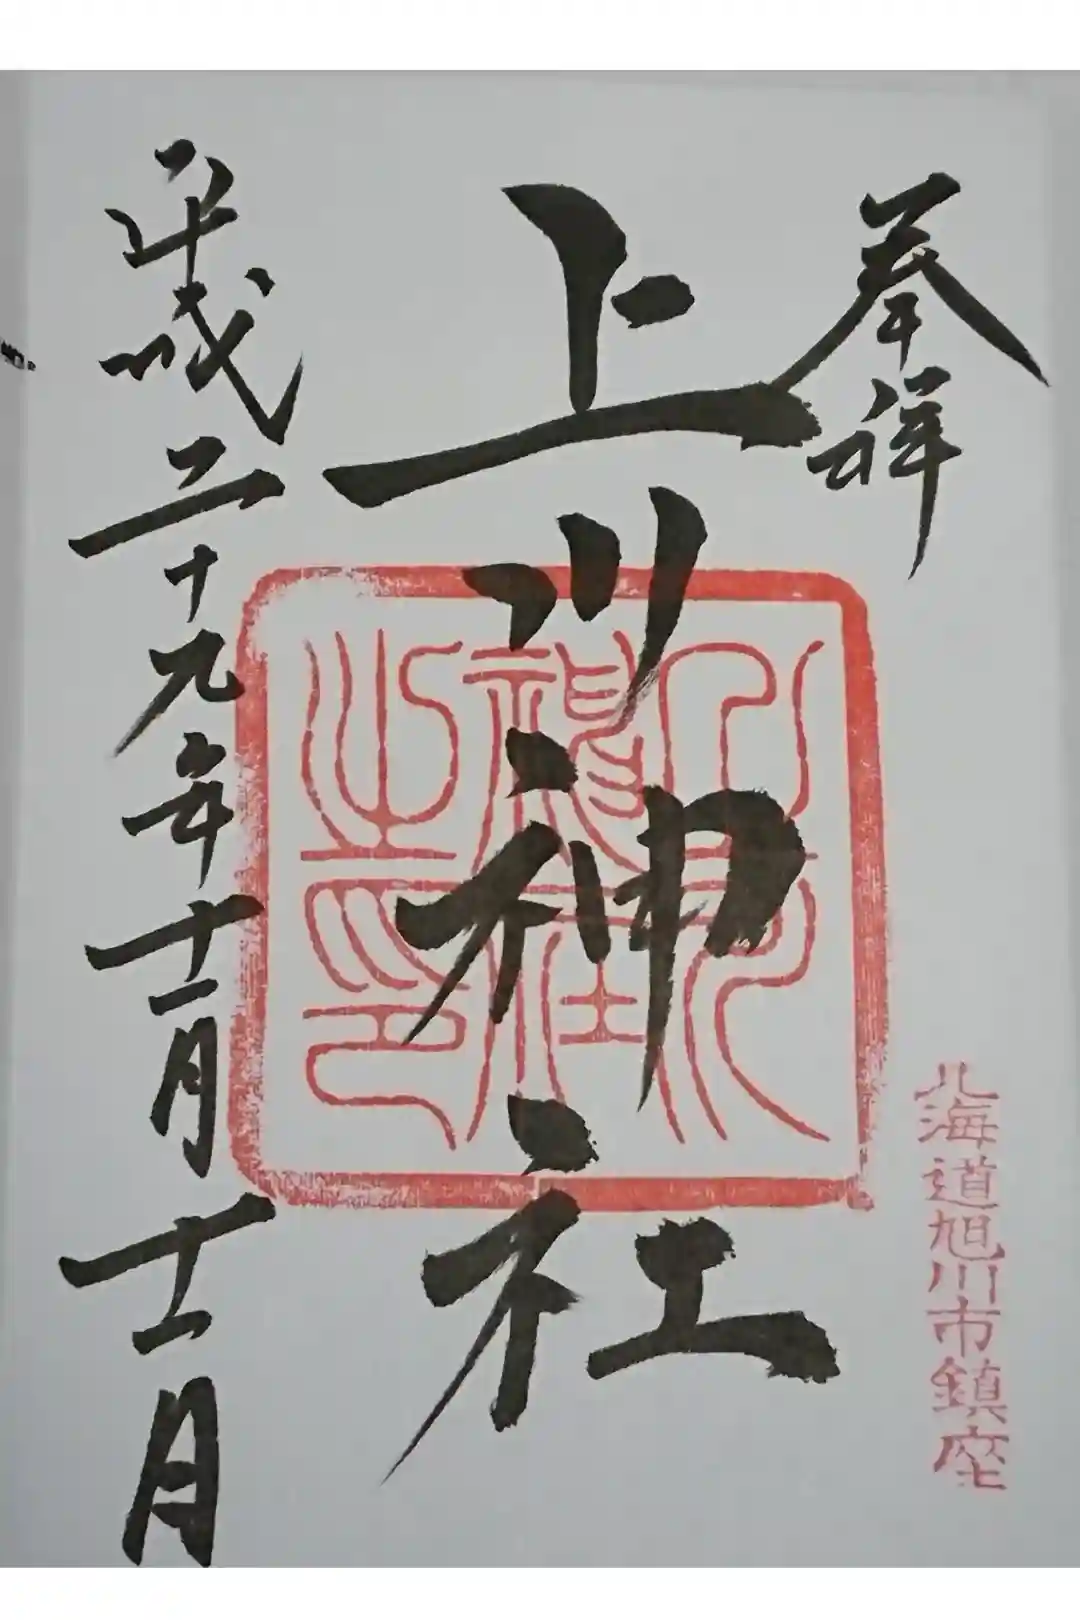 奉拝
北海道旭川市鎮座
上川神社
上川神社之印
平成二十九年十一月十一日